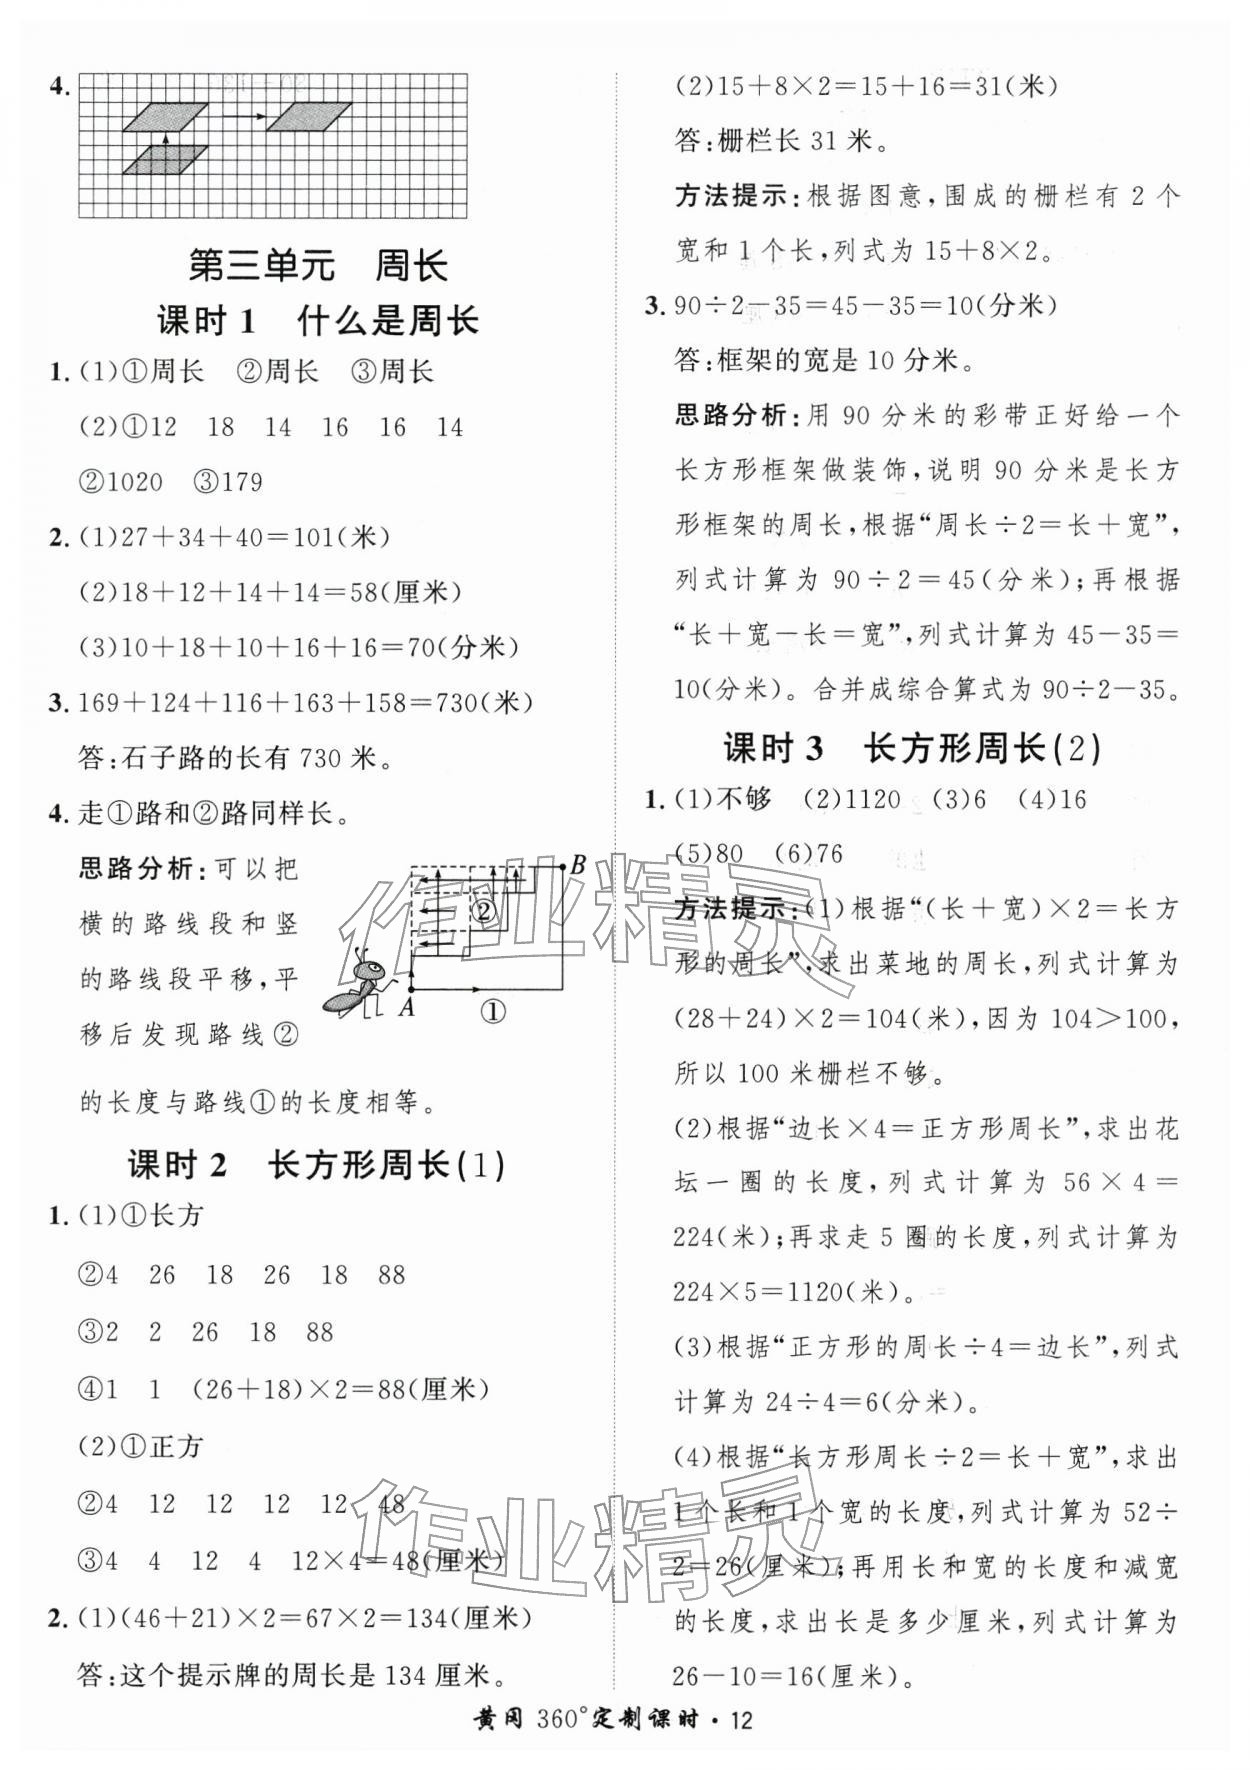 4.
第三单元　周长
课时 1　什么是周长
1. (1)①周长　②周长　③周长
(2)①12　18　14　16　16　14
②1020　③179
2. (1)27＋34＋40＝101(米)
(2)18＋12＋14＋14＝58(厘米)
(3)10＋18＋10＋16＋16＝70(分米)
3. 169＋124＋116＋163＋158＝730(米)
答:石子路的长有 730 米。
4. 走①路和②路同样长。
思路分析:可以把
横的路线段和竖
的路线段平移,平
移后发现路线②
的长度与路线①的长度相等。
B
②
A
①
课时 2　长方形周长(1)
1. (1)①长方
②4　26　18　26　18　88
③2　2　26　18　88
④1　1　(26＋18)×2＝88(厘米)
(2)①正方
②4　12　12　12　12　48
③4　4　12　4　12×4＝48(厘米)
2. (1)(46＋21)×2＝67×2＝134(厘米)
答:这个提示牌的周长是 134 厘米。
(2)15＋8×2＝15＋16＝31(米)
答:栅栏长 31 米。
方法提示:根据图意,围成的栅栏有 2 个
宽和 1 个长,列式为 15＋8×2。
3. 90÷2－35＝45－35＝10(分米)
答:框架的宽是 10 分米。
思路分析:用 90 分米的彩带正好给一个
长方形框架做装饰,说明 90 分米是长方
形框架的周长,根据“周长÷2＝长＋宽”,
列式计算为 90÷2＝45(分米);再根据
“长＋宽－长＝宽”,列式计算为 45－35＝
10(分米)。合并成综合算式为 90÷2－35。
课时 3　长方形周长(2)
1. (1)不够　(2)1120　(3)6　(4)16
(5)80　(6)76
方法提示:(1)根据“(长＋宽)×2＝长方
形的周长”,求出菜地的周长,列式计算为
(28＋24)×2＝104(米),因为 104＞100,
所以 100 米栅栏不够。
(2)根据“边长×4＝正方形周长”,求出花
坛一圈的长度,列式计算为 56×4＝
224(米);再求走 5 圈的长度,列式计算为
224×5＝1120(米)。
(3)根据“正方形的周长÷4＝边长”,列式
计算为 24÷4＝6(分米)。
(4)根据“长方形周长÷2＝长＋宽”,求出
1 个长和 1 个宽的长度,列式计算为 52÷
2＝26(厘米);再用长和宽的长度和减宽
的长度,求出长是多少厘米,列式计算为
26－10＝16(厘米)。
作业精灵
作业精灵
黄冈 360°定制课时・12